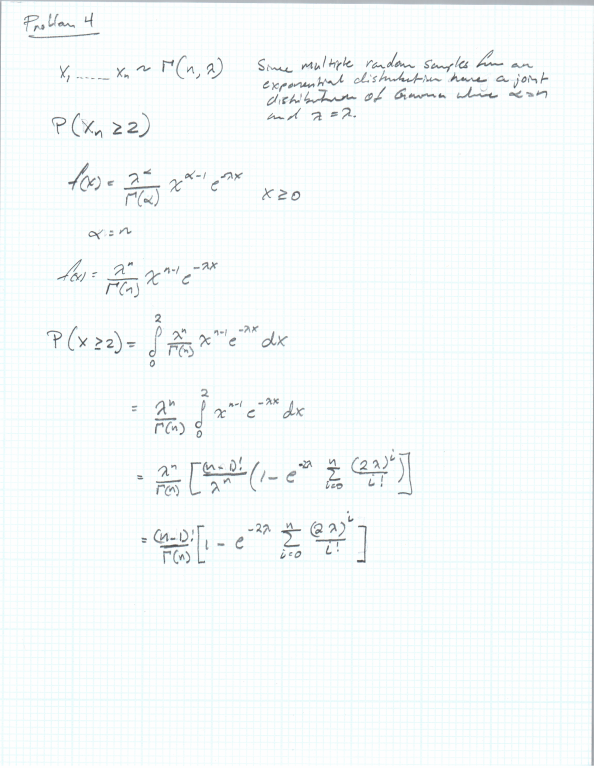 Problem 4
X₁ ...... Xₙ ~ Γ(n, λ)
Since multiple random samples from an
exponential distribution have a joint
distribution of Gamma where α=n
and λ=λ.
P(Xₙ ≥ 2)
f(x) = λ^α/Γ(α) x^(α-1) e^(-λx) x ≥ 0
α = n
f(x) = λ^n/Γ(n) x^(n-1) e^(-λx)
P(X ≥ 2) = ∫₀² λ^n/Γ(n) x^(n-1) e^(-λx) dx
= λ^n/Γ(n) ∫₀² x^(n-1) e^(-λx) dx
= λ^n/Γ(n) [ (n-1)!/λ^n (1 - e^(-2λ) Σ_{i=0}^{n} (2λ)^i/i! ) ]
= (n-1)!/Γ(n) [ 1 - e^(-2λ) Σ_{i=0}^{n} (2λ)^i/i! ]